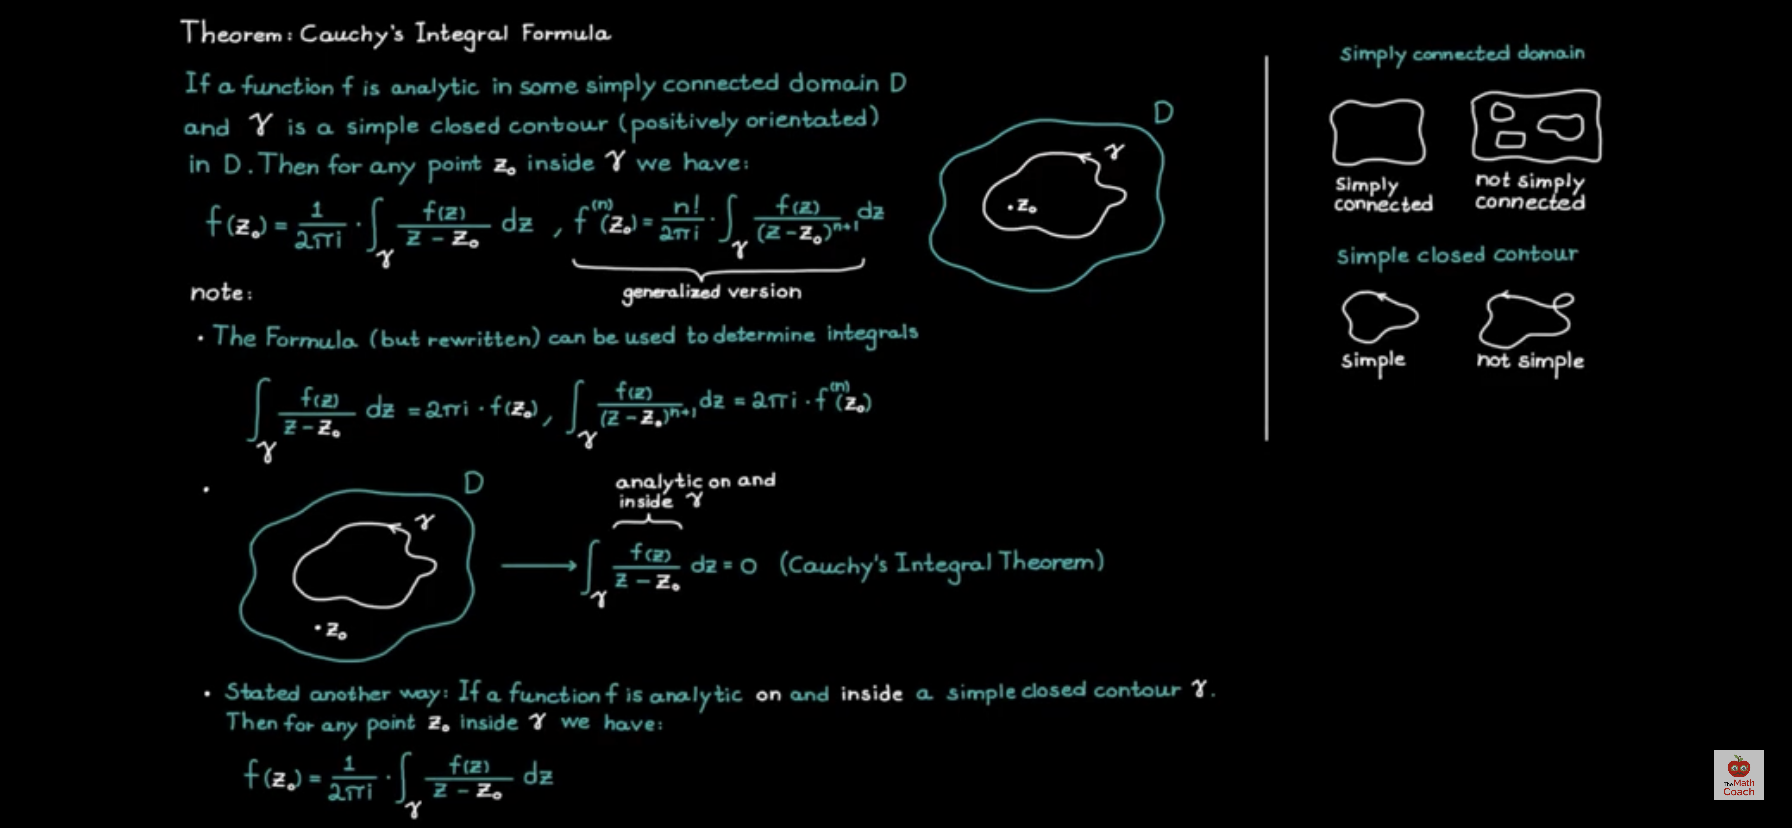 Theorem: Cauchy's Integral Formula
If a function f is analytic in some simply connected domain D
and γ is a simple closed contour (positively orientated)
in D. Then for any point z₀ inside γ we have:
f(z₀) = 1/2πi · ∫_γ f(z)/(z - z₀) dz , f⁽ⁿ⁾(z₀) = n!/2πi · ∫_γ f(z)/(z - z₀)ⁿ⁺¹ dz
generalized version
D
γ
z₀
note:
• The Formula (but rewritten) can be used to determine integrals
∫_γ f(z)/(z - z₀) dz = 2πi · f(z₀), ∫_γ f(z)/(z - z₀)ⁿ⁺¹ dz = 2πi · f⁽ⁿ⁾(z₀)
D
γ
z₀
analytic on and
inside γ
∫_γ f(z)/(z - z₀) dz = 0 (Cauchy's Integral Theorem)
• Stated another way: If a function f is analytic on and inside a simple closed contour γ.
Then for any point z₀ inside γ we have:
f(z₀) = 1/2πi · ∫_γ f(z)/(z - z₀) dz
Simply connected domain
Simply
connected
not simply
connected
Simple closed contour
simple
not simple
The Math
Coach